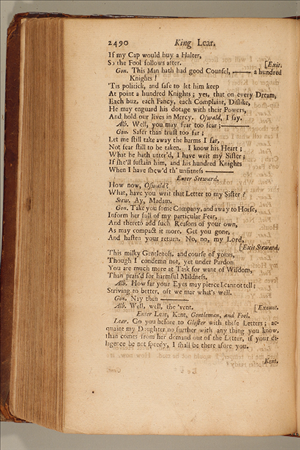 2490 King Lear.
If my Cap would buy a Halter,
So the Fool follows after. [Exit.
Gon. This Man hath had good Counsel, —— a hundred
Knights!
'Tis politick, and safe to let him keep
At point a hundred Knights; yes, that on every Dream,
Each buz, each Fancy, each Complaint, Dislike,
He may enguard his dotage with their Powers,
And hold our lives in Mercy. Oswald, I say.
Alb. Well, you may fear too fear ——
Gon. Safer than trust too far;
Let me still take away the harms I fear,
Not fear still to be taken. I know his Heart;
What he hath utter'd, I have writ my Sister;
If she'll sustain him, and his hundred Knights
When I have shew'd th' unfitness ——
Enter Steward.
How now, Oswald?
What, have you writ that Letter to my Sister?
Stew. Ay, Madam.
Gon. Take you some Company, and away to Horse,
Inform her full of my particular Fear,
And thereto add such Reasons of your own,
As may compact it more. Get you gone,
And hasten your return. No, no, my Lord,
[Exit Steward.
This milky Gentleness, and course of yours,
Though I condemn not, yet under Pardon
You are much more at Task for want of Wisdom,
Than prais'd for harmful Mildness.
Alb. How far your Eyes may pierce I cannot tell;
Striving to better, oft we mar what's well.
Gon. Nay then ——
Alb. Well, well, the 'vent. [Exeunt.
Enter Lear, Kent, Gentleman, and Fool.
Lear. Go you before to Gloster with these Letters; ac-
quaint my Daughter no further with any thing you know,
than comes from her demand out of the Letter, if your di-
ligence be not speedy, I shall be there afore you.
Kent.